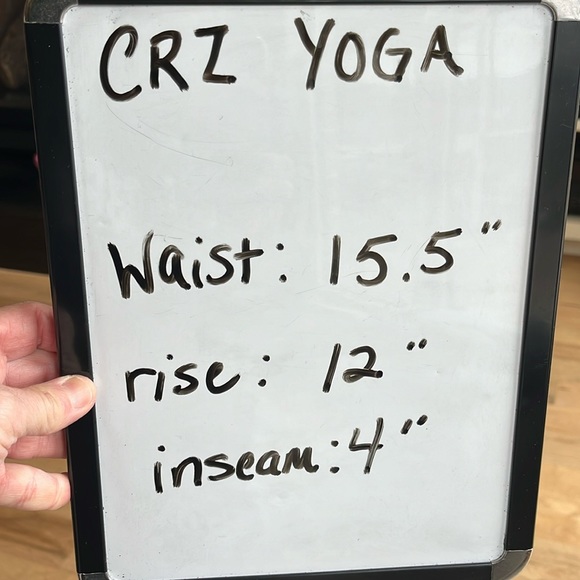 CRZ YOGA
Waist: 15.5"
rise: 12"
inseam: 4"